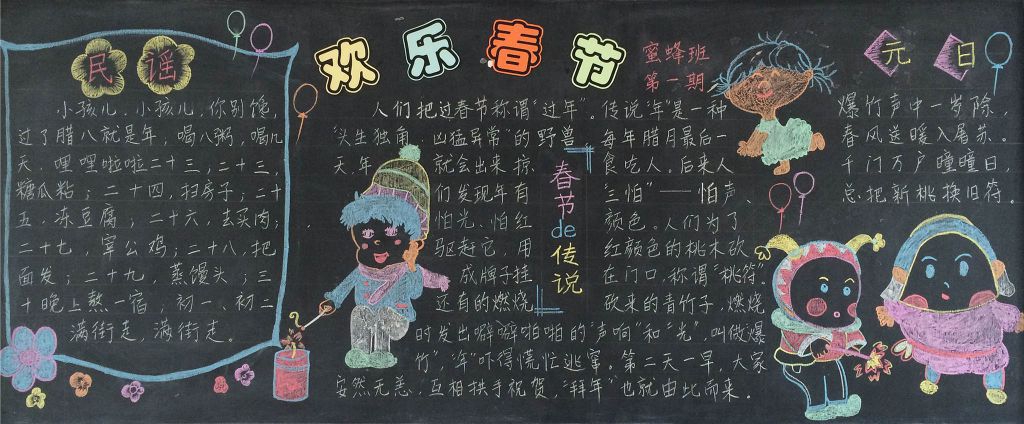 欢乐春节
蜜蜂班
第一期
民谣
小孩儿、小孩儿,你别馋,
过了腊八就是年,喝八粥,喝几
天 哩哩啦啦二十三,二十三,
糖瓜粘;二十四,扫房子;二十
五、冻豆腐;二十六,去买肉;
二十七,宰公鸡;二十八,把
面发;二十九,蒸馒头;三
十晚上熬一宿,初一、初二
满街走,满街走。
春节de传说
人们把过春节称谓“过年”。传说“年”是一种
“头生独角、凶猛异常”的野兽 每年腊月最后一
天,年 就会出来掠 食吃人。后来人
们发现年有 三怕”——怕声、
怕光、怕红 颜色。人们为了
驱赶它,用 红颜色的桃木砍
成牌子挂 在门口,称谓“桃符”
还有的燃烧 砍来的青竹子,燃烧
时发出噼噼啪啪的“声响”和“光”,叫做“爆
竹”,“年”吓得慌忙逃窜。第二天一早,大家
安然无恙,互相拱手祝贺,“拜年”也就由此而来。
元日
爆竹声中一岁除,
春风送暖入屠苏。
千门万户曈曈日,
总把新桃换旧符。